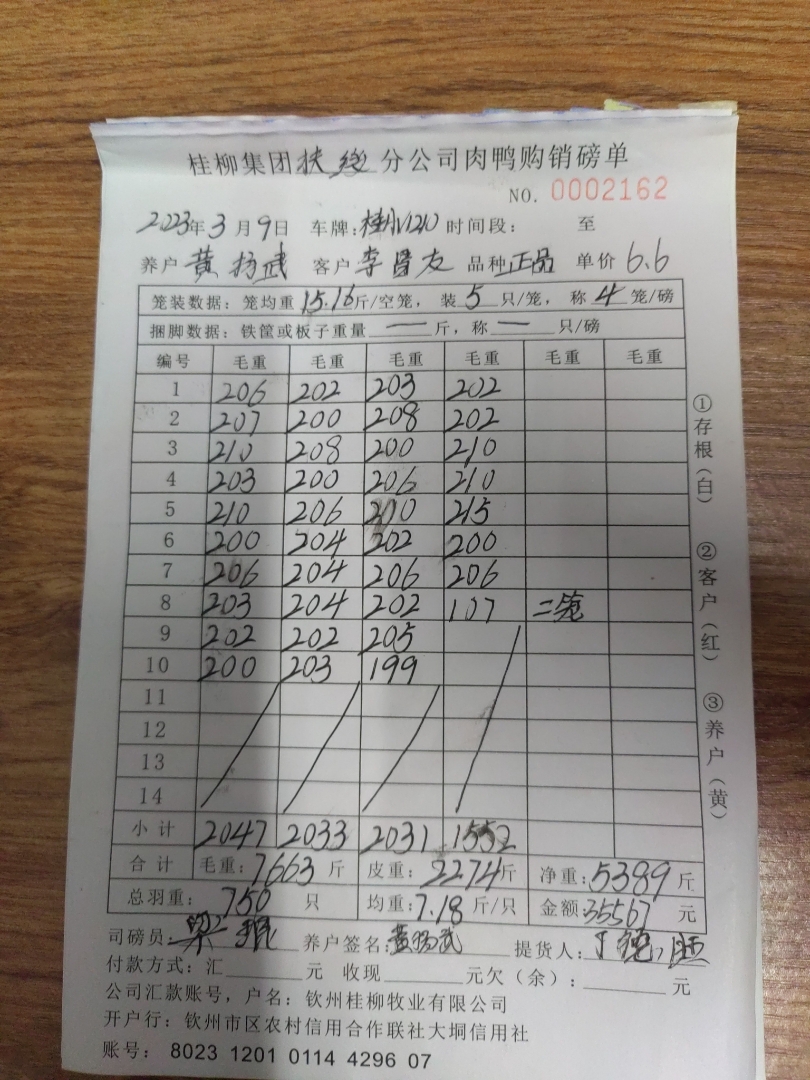 桂柳集团扶绥分公司肉鸭购销磅单
NO. 0002162
2023年3月9日 车牌: 时间段： 至
养户 黄扬武 客户 李昌友 品种 正品 单价 6.6
笼装数据：笼均重 15.16 斤/空笼，装 5 只/笼，称 4 笼/磅
捆脚数据：铁筐或板子重量 — 斤，称 — 只/磅
编号 毛重 毛重 毛重 毛重 毛重 毛重
1 206 202 203 202
2 207 200 208 202
3 210 208 200 210
4 203 200 206 210
5 210 206 210 215
6 200 204 202 200
7 206 204 206 206
8 203 204 202 107 二笼
9 202 202 205
10 200 203 199
11
12
13
14
小计 2047 2033 2031 1552
合计 毛重：7663 斤 皮重：2274 斤 净重：5389 斤
总羽重：750 只 均重：7.18 斤/只 金额：35567 元
司磅员： 养户签名：黄扬武 提货人：
付款方式：汇 元 收现 元欠（余）： 元
公司汇款账号，户名：钦州桂柳牧业有限公司
开户行：钦州市区农村信用合作联社大垌信用社
账号： 8023 1201 0114 4296 07
①存根（白） ②客户（红） ③养户（黄）